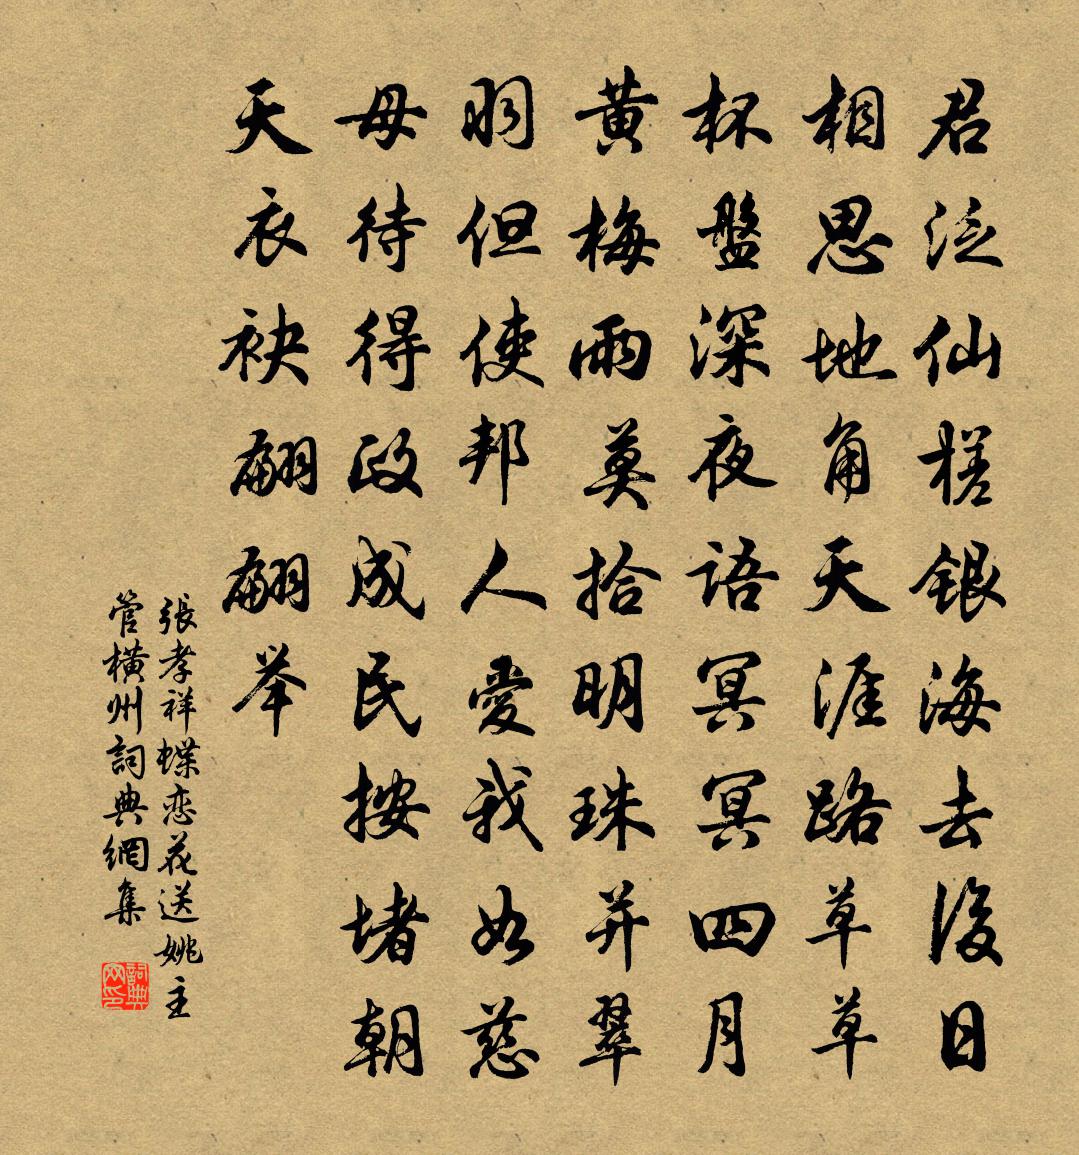 君泛仙槎銀海去後日
相思地角天涯路草草
杯盤深夜語冥冥四月
黄梅雨莫拾明珠并翠
羽但使邦人愛我如慈
母待得政成民按堵朝
天衣袂翩翩举
張孝祥蝶恋花送姚主
管橫州詞典網集
詞典网印